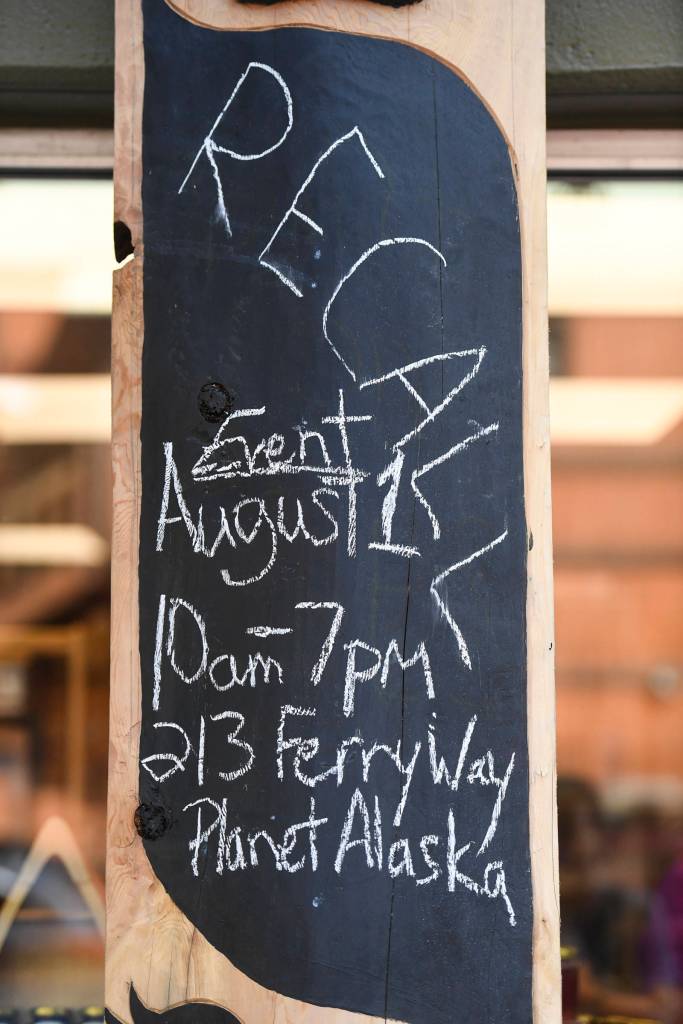 RECALL
Event
August 1
10am-7pm
213 Ferry Way
Planet Alaska